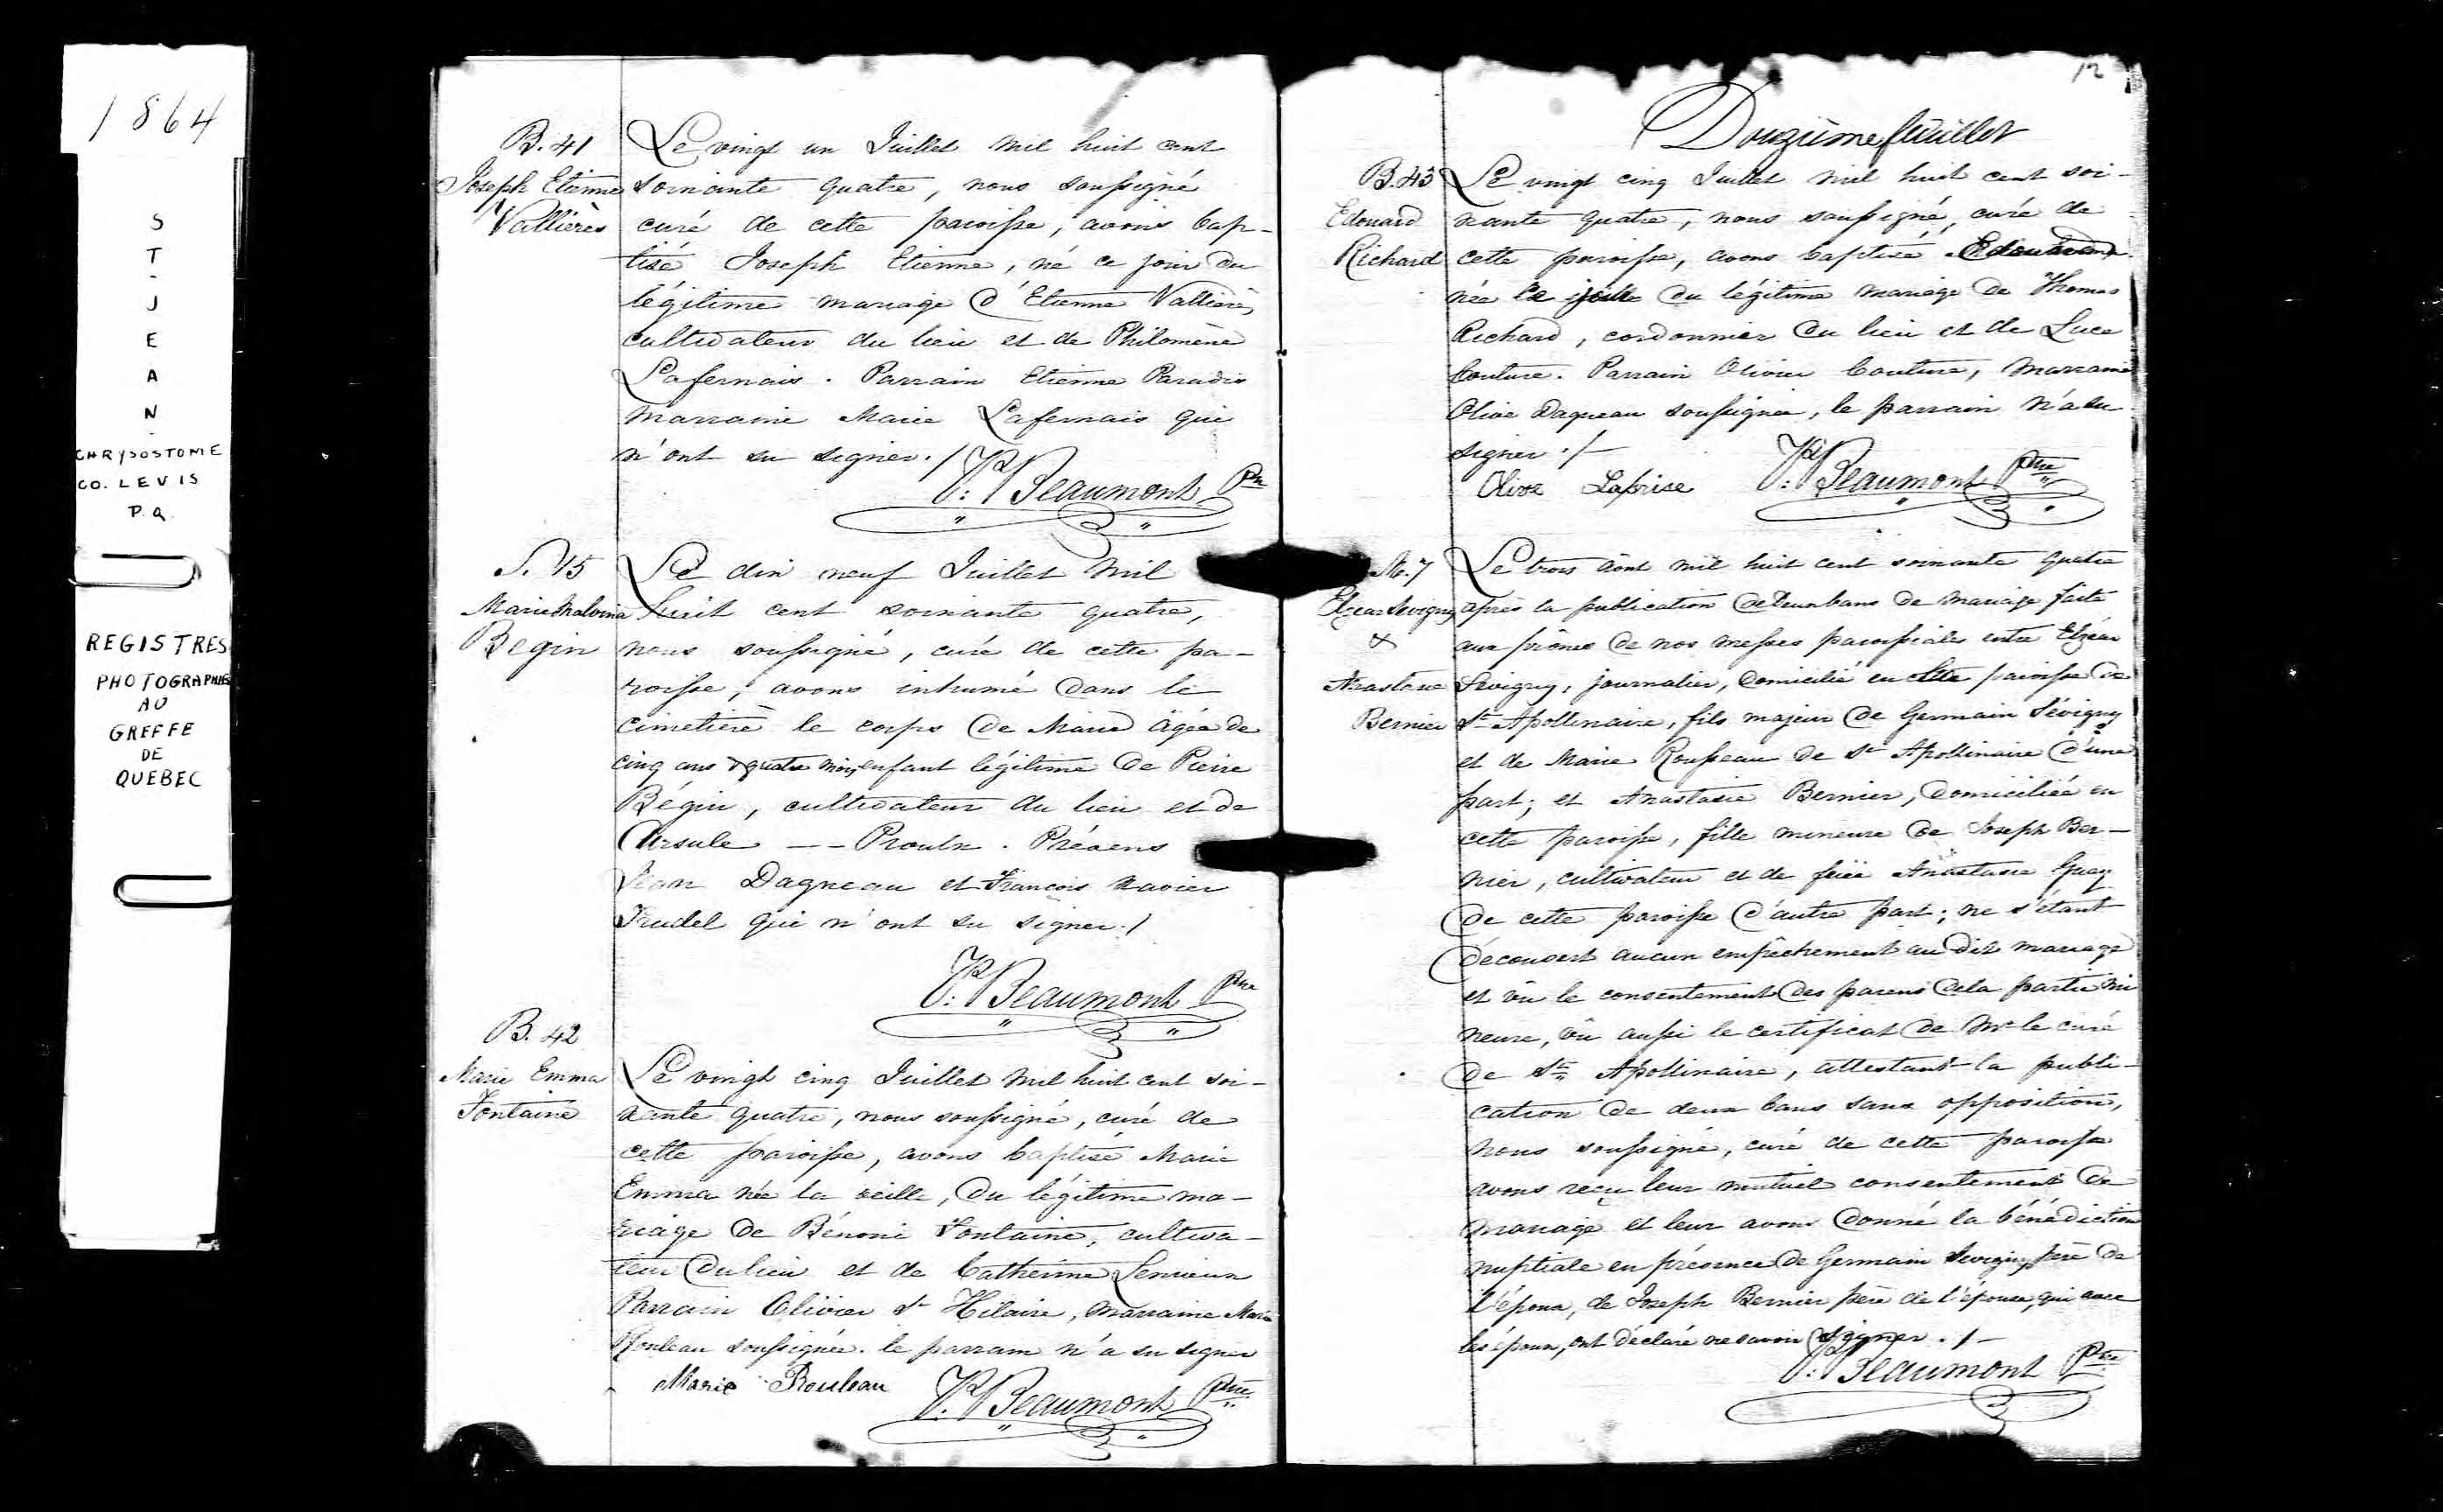 1864
S
T
-
J
E
A
N
-
CHRYSOSTOME
CO. LEVIS
P.Q.
REGISTRES
PHOTOGRAPHIES
AU
GREFFE
DE
QUEBEC
B. 41
Joseph Etienne
Vallières
Le vingt un Juillet mil huit cent
soixante quatre, nous soussigné
curé de cette paroisse, avons bap-
tisé Joseph Etienne, né ce jour du
légitime mariage d'Etienne Vallières
cultivateur du lieu et de Philomène
Lafernais. Parrain Etienne Paradis
Marraine Marie Lafernais qui
n'ont su signer./
Beaumont Ptre
S. 15
Marie Malvina
Begin
Le dix neuf Juillet mil
huit cent soixante quatre,
nous soussigné, curé de cette pa-
roisse, avons inhumé dans le
cimetière le corps de Marie âgée de
cinq ans & quatre mois, enfant légitime de Pierre
Bégin, cultivateur du lieu et de
Ursule -- Proulx. Présens
Jean Dagneau et François Xavier
Trudel qui n'ont su signer./
Beaumont Ptre
B. 42
Marie Emma
Fontaine
Le vingt cinq Juillet mil huit cent soi-
xante quatre, nous soussigné, curé de
cette paroisse, avons baptisé Marie
Emma née la veille, du légitime ma-
riage de Bénoni Fontaine, cultiva-
teur du lieu et de Catherine Lemieux
Parrain Olivier St Hilaire, marraine Marie
Rouleau soussignée. le parrain n'a su signer
Marie Rouleau Beaumont Ptre
12
Douzième feuillet
B. 43
Edouard
Richard
Le vingt cinq Juillet mil huit cent soi-
xante quatre, nous soussigné, curé de
cette paroisse, avons baptisé Edouard
née du légitime mariage de Thomas
Richard, cordonnier du lieu et de Luce
Couture. Parrain Olivier Couture, Marraine
Olive Dagneau soussignée, le parrain n'a su
signer./-
Olive Laprise Beaumont Ptre
M. 7
Elzear Sevigny
&
Anastasie
Bernier
Le trois août mil huit cent soixante quatre
après la publication de deux bans de mariage faite
aux prônes de nos messes paroissiales entre Elzéar
Sevigny, journalier, domicilié en paroisse de
St Apollinaire, fils majeur de Germain Sévigny
et de Marie Rousseau de St Apollinaire d'une
part; et Anastasie Bernier, domiciliée en
cette paroisse, fille mineure de Joseph Ber-
nier, cultivateur et de feue Anastasie Guay
de cette paroisse d'autre part; ne s'étant
découvert aucun empêchement au dit mariage
et vu le consentement des parens de la partie mi
neure, vu aussi le certificat de Mr le curé
de St Apollinaire, attestant la publi-
cation de deux bans sans opposition,
nous soussigné, curé de cette paroisse
avons reçu leur mutuel consentement de
mariage et leur avons donné la bénédiction
nuptiale en présence de Germain Sevigny père de
l'époux, de Joseph Bernier père de l'épouse, qui avec
les époux, ont déclaré ne savoir signer./-
Beaumont Ptre